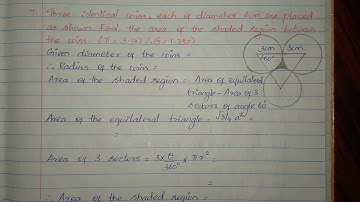 7. Three identical coins, each of diameter 6cm are placed
as shown. Find the area of the shaded region between
the coins. (π = 3.14) (√3 = 1.732)
Given diameter of the coins =
∴ Radius of the coins =
Area of the shaded region = Area of equilateral
triangle - Area of 3
sectors of angle 60°
Area of the equilateral triangle = √3/4 a²
=
=
Area of 3 sectors = 3 x θ/360° x πr² =
=
∴ Area of the shaded region =
3cm 3cm
60°